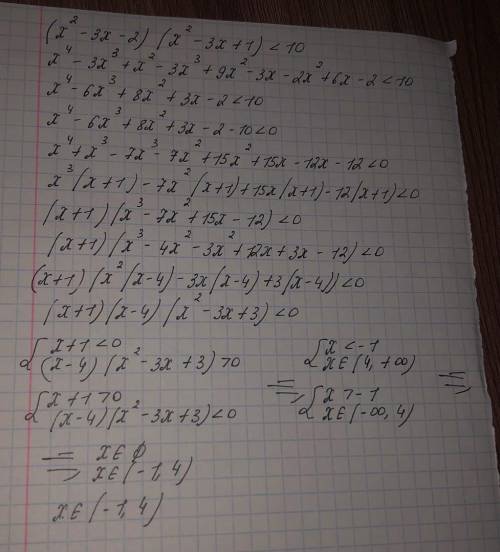 (x² - 3x - 2) (x² - 3x + 1) < 10
x⁴ - 3x³ + x² - 3x³ + 9x² - 3x - 2x² + 6x - 2 < 10
x⁴ - 6x³ + 8x² + 3x - 2 < 10
x⁴ - 6x³ + 8x² + 3x - 2 - 10 < 0
x⁴ + x³ - 7x³ - 7x² + 15x² + 15x - 12x - 12 < 0
x³(x + 1) - 7x²(x + 1) + 15x(x + 1) - 12(x + 1) < 0
(x + 1) (x³ - 7x² + 15x - 12) < 0
(x + 1) (x³ - 4x² - 3x² + 12x + 3x - 12) < 0
(x + 1) (x²(x - 4) - 3x(x - 4) + 3(x - 4)) < 0
(x + 1) (x - 4) (x² - 3x + 3) < 0
{ x + 1 < 0
(x - 4) (x² - 3x + 3) > 0
{ x + 1 > 0
(x - 4) (x² - 3x + 3) < 0
=>
{ x < -1
x ∈ (4, +∞)
{ x > -1
x ∈ (-∞, 4)
=>
=> x ∈ ∅
x ∈ (-1, 4)
x ∈ (-1, 4)